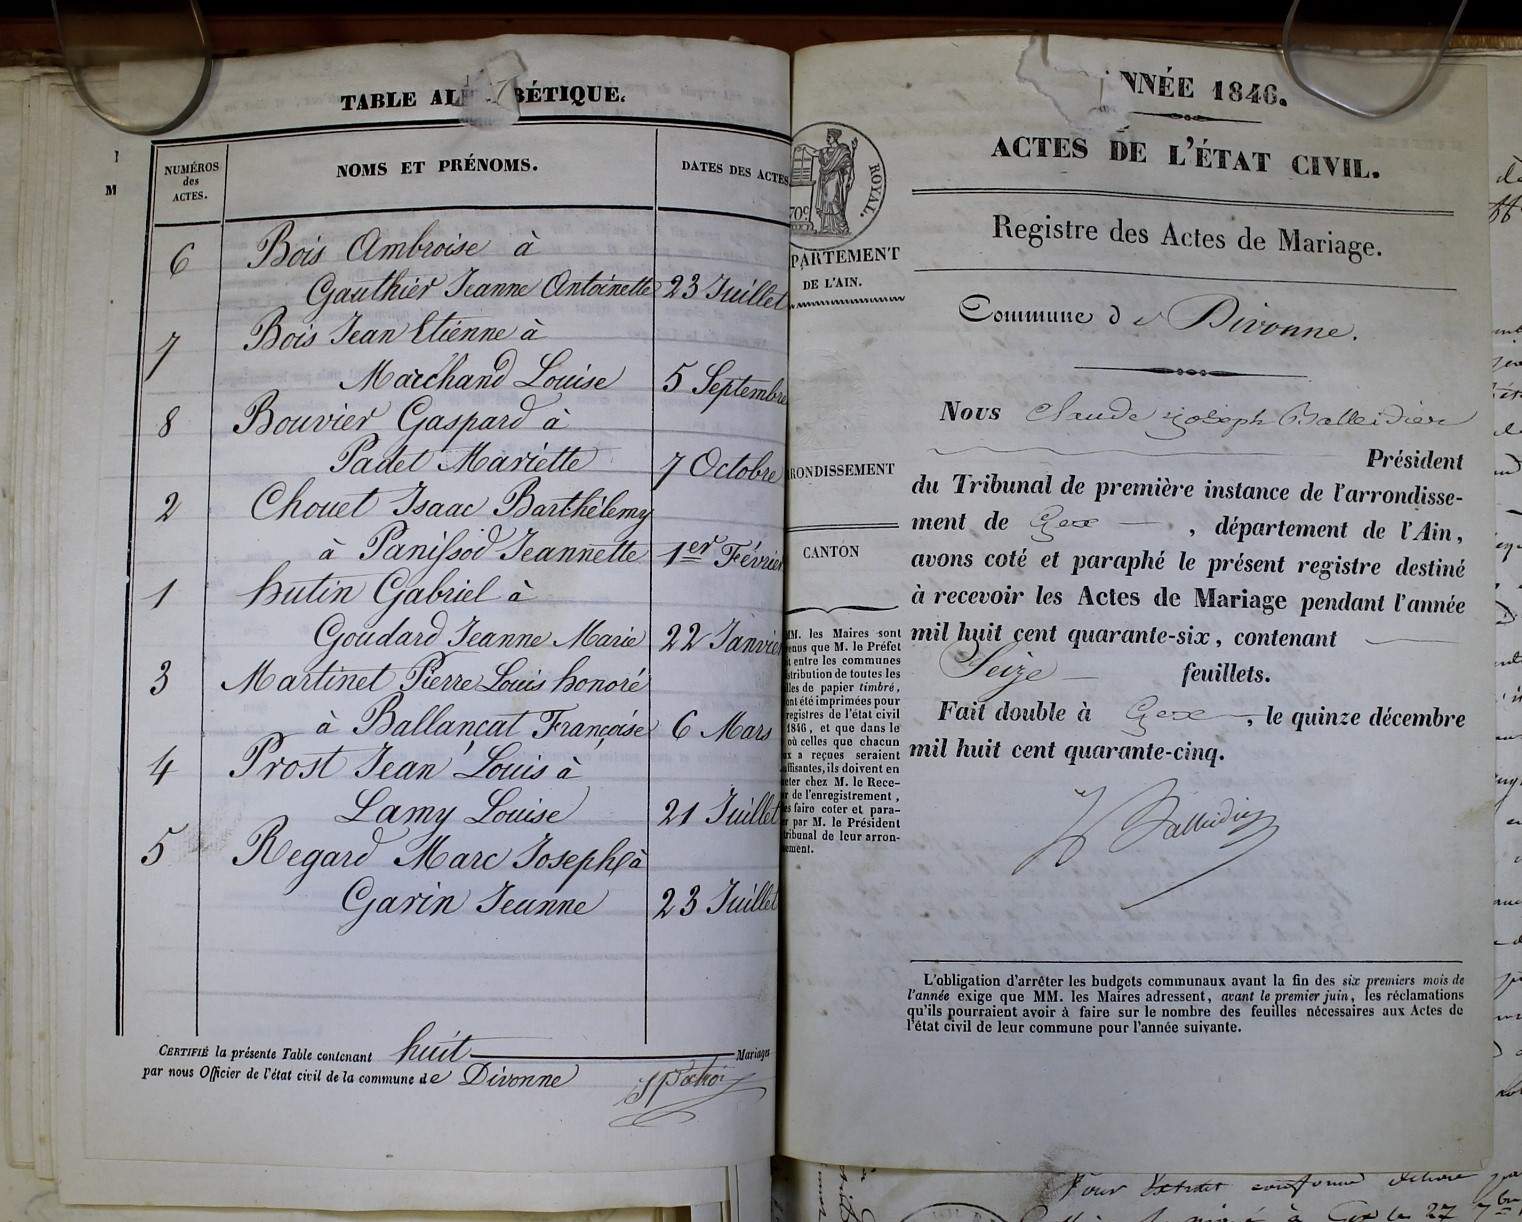 TABLE AL BÉTIQUE.
NUMÉROS des ACTES.
NOMS ET PRÉNOMS.
DATES DES ACTES
6 Bois Ambroise à
Gauthier Jeanne Antoinette 23 Juillet
7 Bois Jean Etienne à
Marchand Louise 5 Septembre
8 Bouvier Gaspard à
Padet Mariette 7 Octobre
2 Chouet Isaac Barthélemy
à Panissod Jeannette 1er Février
1 hutin Gabriel à
Goudard Jeanne Marie 22 Janvier
3 Martinet Pierre Louis honoré
à Ballancat Françoise 6 Mars
4 Prost Jean Louis à
Lamy Louise 21 Juillet
5 Regard Marc Joseph à
Garin Jeanne 23 Juillet
CERTIFIÉ la présente Table contenant huit Mariages
par nous Officier de l'état civil de la commune de Divonne
NNÉE 1846.
ACTES DE L'ÉTAT CIVIL.
Registre des Actes de Mariage.
Commune de Divonne.
ROYAL.
70c
PARTEMENT
DE L'AIN.
RONDISSEMENT
CANTON
MM. les Maires sont
enus que M. le Préfet
t entre les communes
stribution de toutes les
lles de papier timbré,
ont été imprimées pour
registres de l'état civil
1846, et que dans le
où celles que chacun
ux a reçues seraient
uffisantes, ils doivent en
eter chez M. le Rece-
r de l'enregistrement,
es faire coter et para-
r par M. le Président
ribunal de leur arron-
sement.
Nous Claude joseph Balleidier
Président
du Tribunal de première instance de l'arrondisse-
ment de Gex, département de l'Ain,
avons coté et paraphé le présent registre destiné
à recevoir les Actes de Mariage pendant l'année
mil huit cent quarante-six, contenant
Seize feuillets.
Fait double à Gex, le quinze décembre
mil huit cent quarante-cinq.
Balleidier
L'obligation d'arrêter les budgets communaux avant la fin des six premiers mois de
l'année exige que MM. les Maires adressent, avant le premier juin, les réclamations
qu'ils pourraient avoir à faire sur le nombre des feuilles nécessaires aux Actes de
l'état civil de leur commune pour l'année suivante.
Pour Extrait conforme